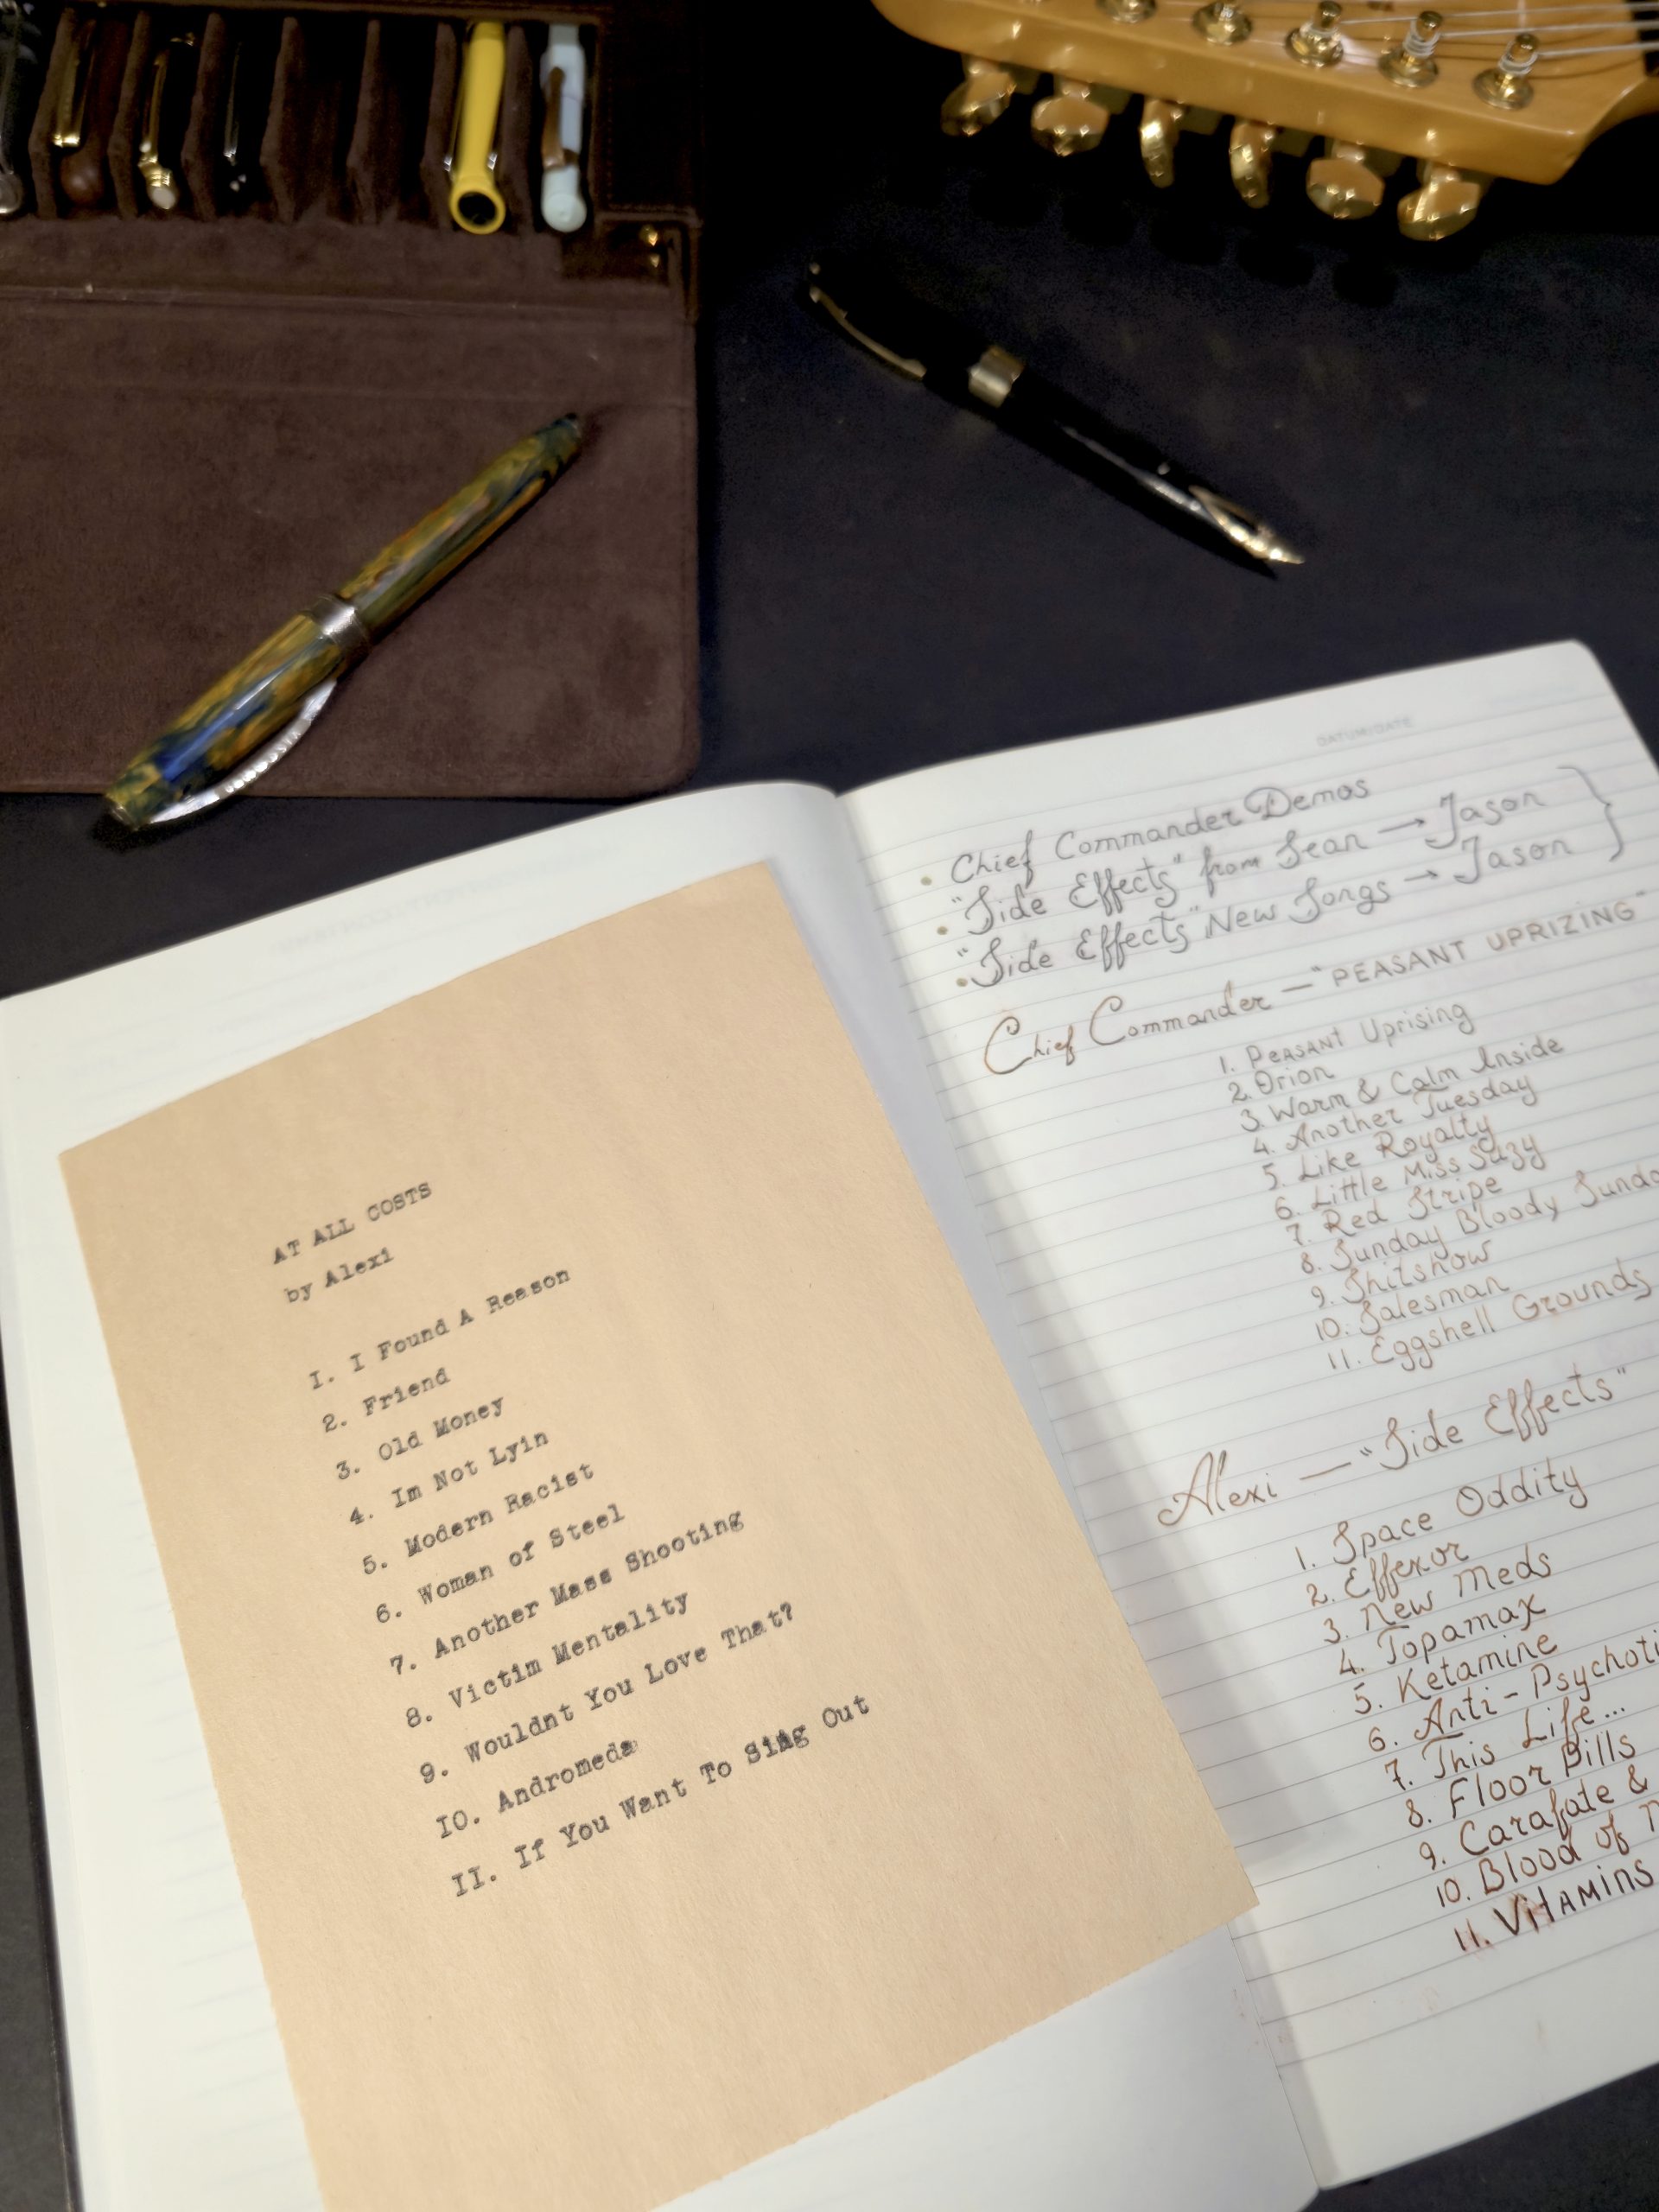 AT ALL COSTS
by Alexi
I. I Found A Reason
2. Friend
3. Old Money
4. Im Not Lyin
5. Modern Racist
6. Woman of Steel
7. Another Mass Shooting
8. Victim Mentality
9. Wouldnt You Love That?
IO. Andromeda
II. If You Want To Sing Out
DATUM/DATE
• Chief Commander Demos
• "Side Effects" from Sean → Jason
• "Side Effects" New Songs → Jason
Chief Commander — "PEASANT UPRIZING"
1. PEASANT Uprising
2. Orion
3. Warm & Calm Inside
4. Another Tuesday
5. Like Royalty
6. Little Miss Suzy
7. Red Stripe
8. Sunday Bloody
9. Shitshow
10. Salesman
11. Eggshell Grounds
Alexi — "Side Effects"
1. Space Oddity
2. Effexor
3. New Meds
4. Topamax
5. Ketamine
6. Anti-Psychoti
7. This Life...
8. Floor Pills
9. Carafate &
10. Blood of
11. VitAMINS